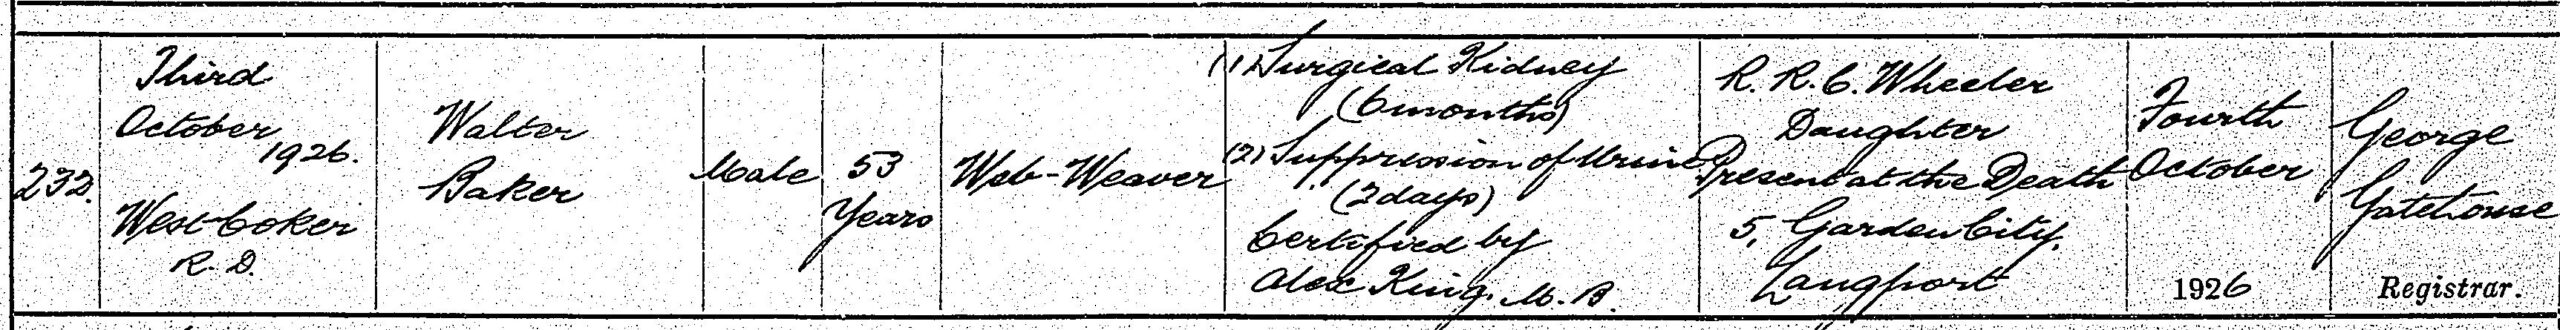 232.
Third
October
1926.
West Coker
R. D.
Walter
Baker
Male
53
Years
Web-Weaver
(1) Surgical Kidney
(6 months)
(2) Suppression of Urine
(2 days)
Certified by
Alex King. M. B.
R. R. C. Wheeler
Daughter
Present at the Death
5, Garden City.
Langport
Fourth
October
1926
George
Gatehouse
Registrar.